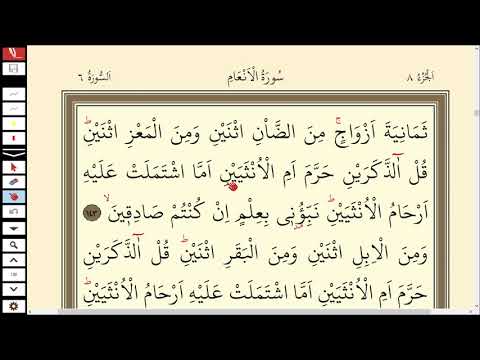 اَلْجُزْءُ ٨ سُورَةُ الْاَنْعَامِ اَلسُّورَةُ ٦
ثَمَانِيَةَ اَزْوَاجٍۚ مِنَ الضَّأْنِ اثْنَيْنِ وَمِنَ الْمَعْزِ اثْنَيْنِۜ
قُلْ آٰلذَّكَرَيْنِ حَرَّمَ اَمِ الْاُنْثَيَيْنِ اَمَّا اشْتَمَلَتْ عَلَيْهِ
اَرْحَامُ الْاُنْثَيَيْنِۜ نَبِّؤُ۫نٖي بِعِلْمٍ اِنْ كُنْتُمْ صَادِقٖينَۙ ١٤٣
وَمِنَ الْاِبِلِ اثْنَيْنِ وَمِنَ الْبَقَرِ اثْنَيْنِۜ قُلْ آٰلذَّكَرَيْنِ
حَرَّمَ اَمِ الْاُنْثَيَيْنِ اَمَّا اشْتَمَلَتْ عَلَيْهِ اَرْحَامُ الْاُنْثَيَيْنِۜ